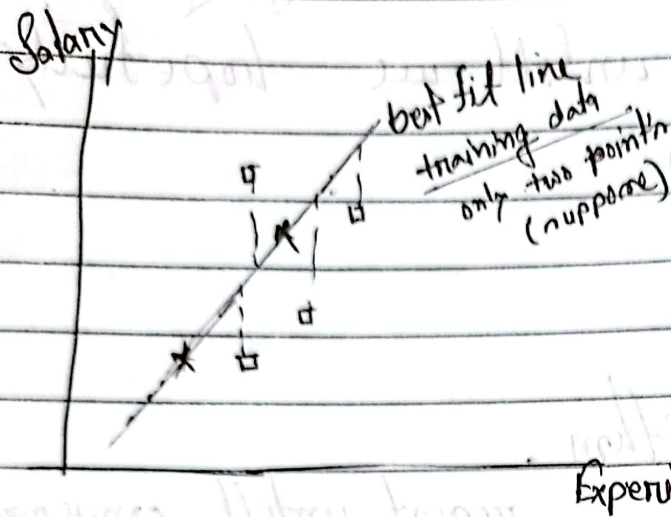 Salary
best fit line
training data
only two point's
(suppose)
Experi